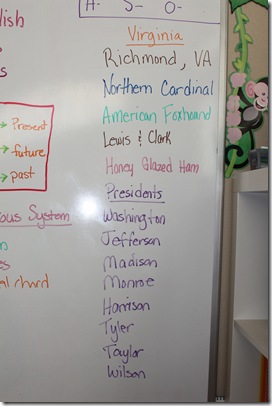 H- S- O-
lish
s
Present
future
past
ous System
es
al chord
Virginia
Richmond, VA
Northern Cardinal
American Foxhound
Lewis & Clark
Honey Glazed Ham
Presidents
Washington
Jefferson
Madison
Monroe
Harrison
Tyler
Taylor
Wilson